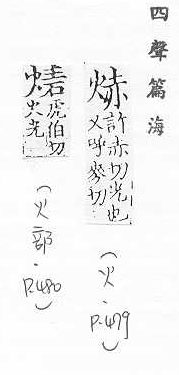 四聲篇海
焃
許赤切光也
又呼麥切
(火．P.479)
虎伯切
火光
(火部．P.480)